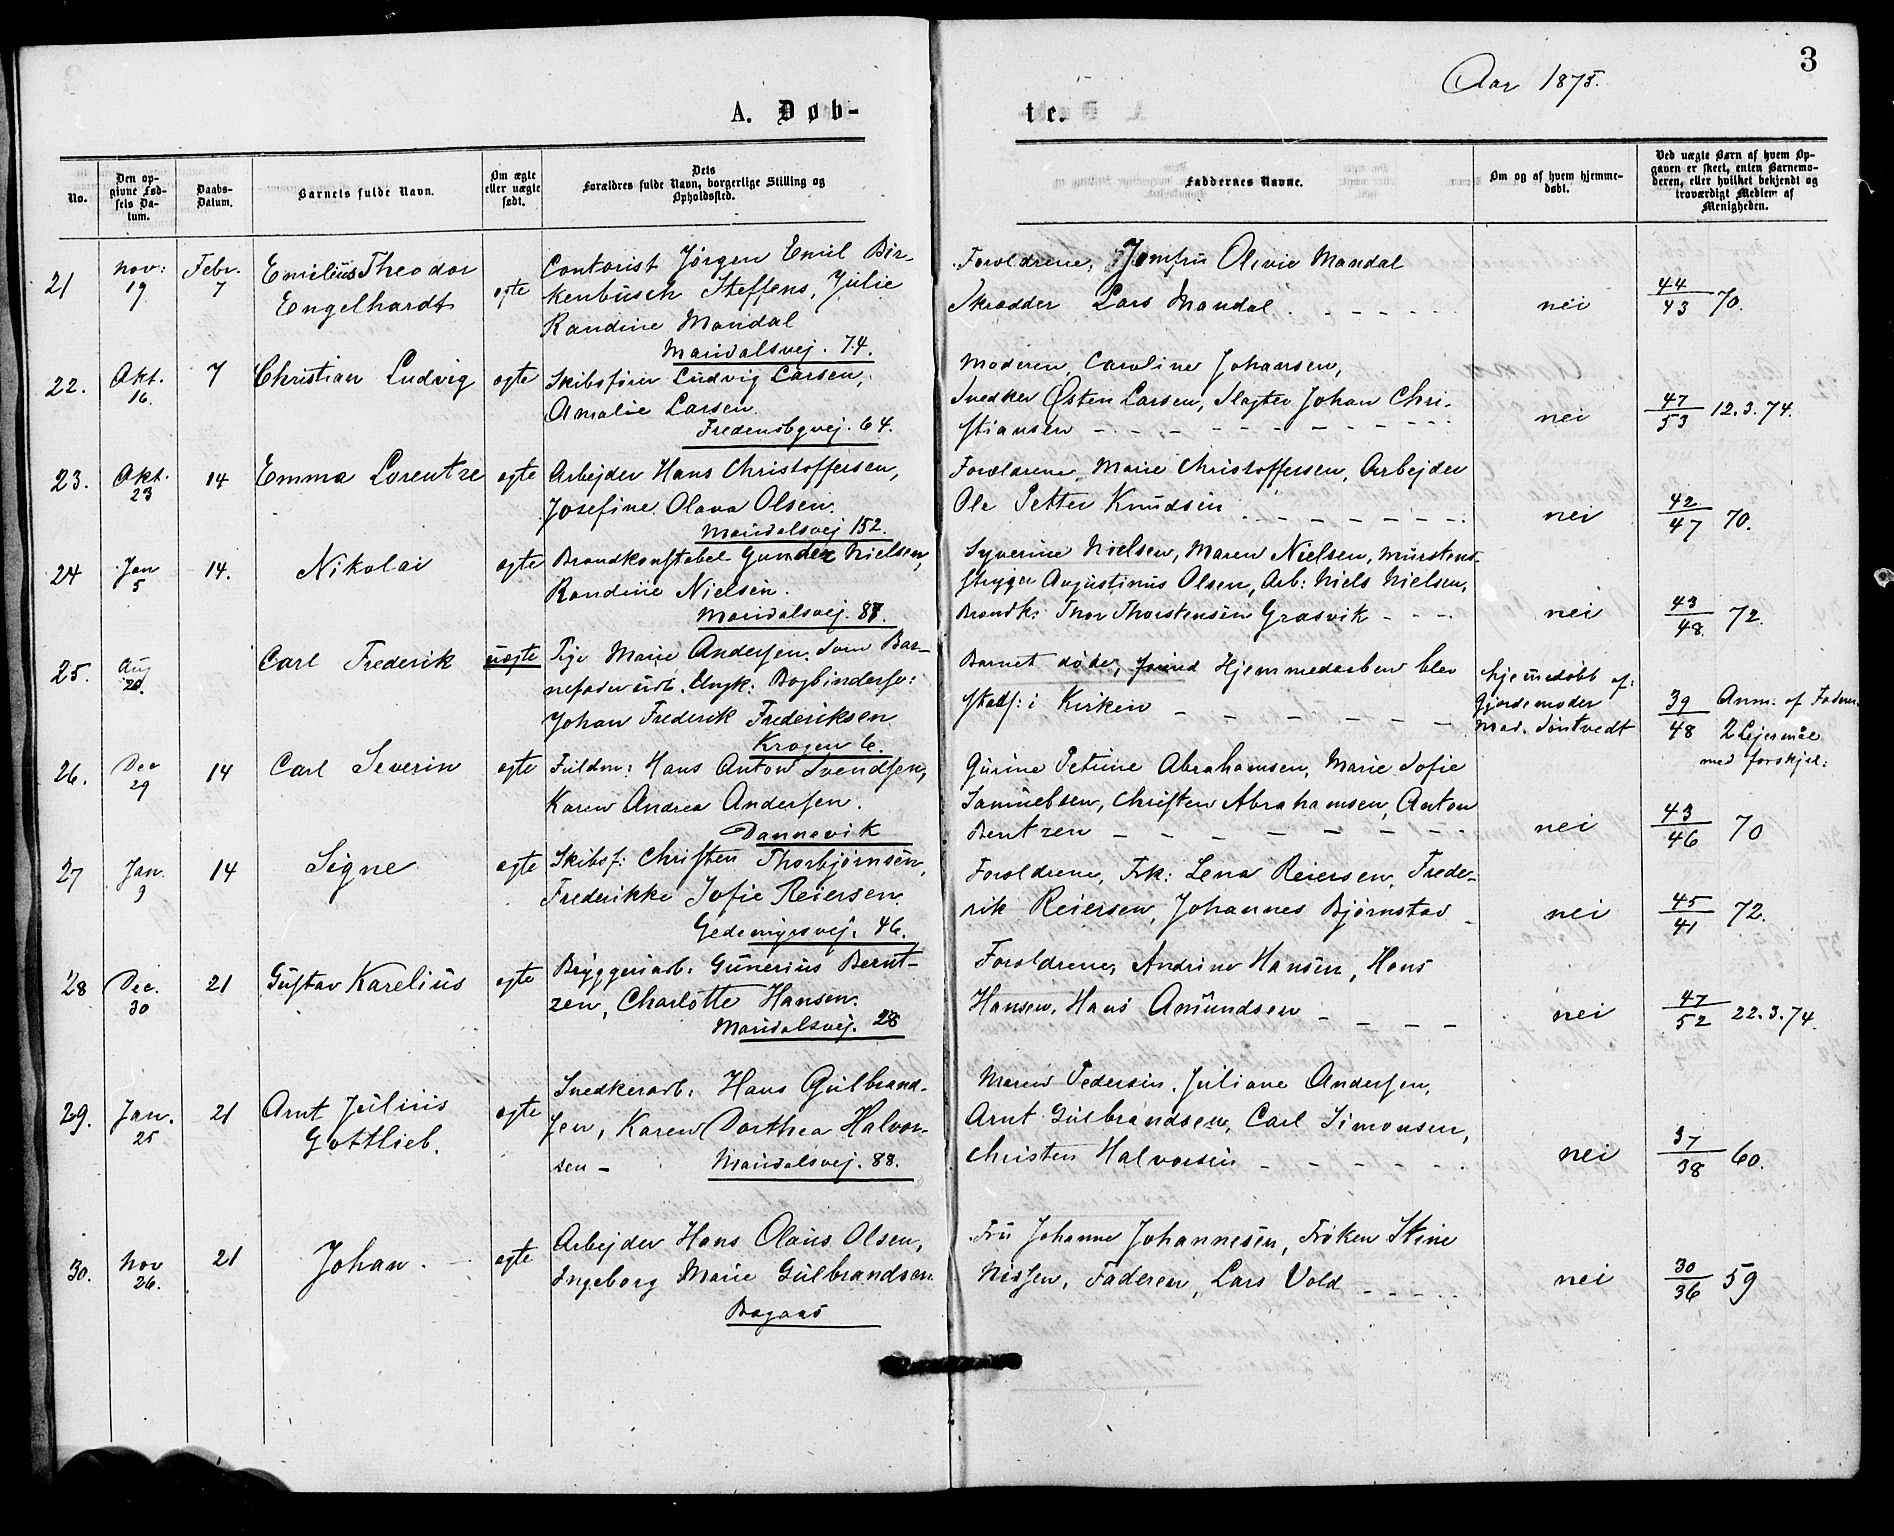 3
Aar 1875.
A. Døb-
te.
No.
Den op-
givne Fød-
sels Da-
tum.
Daabs-
Datum.
Barnets fulde Navn.
Om ægte
eller uægte
født.
Dets
Forældres fulde Navn, borgerlige Stilling og
Opholdssted.
Faddernes Navne.
Om og af hvem hjemme-
døbt.
Ved uægte Barn af hvem Op-
gaven er skeet, enten Barnemo-
deren, eller hvilket bekjendt og
troværdigt Medlem af
Menigheden.
21
Nov:
19
Febr.
7
Emilius Theodor
Engelhardt
ægte
Contorist Jørgen Emil Bir-
kenbusch Steffens, Julie
Randine Mandal
Maridalsvej. 74.
Forældrene, Jomfru Olivie Mandal
Skrædder Lars Mandal
nei
44/43 70.
22.
Okt.
16.
7
Christian Ludvig
ægte
Skibsfører Ludvig Larsen,
Amalie Larsen.
Fredensbgvej. 64.
Moderen, Caroline Johansen,
Snedker Østen Larsen, Slagter Johan Chri-
stiansen
nei
47/53 12.3.74.
23.
Okt.
23
14
Emma Lorentze
ægte
Arbejder Hans Christoffersen,
Josefine Olava Olsen.
Maridalsvej 152.
Forældrene, Marie Christoffersen, Arbejder
Ole Petter Knudsen
nei
42/47 70.
24
Jan
5
14.
Nikolai
ægte
Brandkonstabel Gunder Nielsen,
Randine Nielsen.
Maridalsvej. 87.
Syverine Nielsen, Maren Nielsen, Murstens-
stryger Augustinus Olsen, Arb: Niels Nielsen,
Brandk: Thor Thorstensen Græsvik
nei
43/48 72.
25.
Aug
20.
Carl Frederik
uægte
Pige Marie Andersen. Som Bar-
nefader udl. Ungk: Bogbindersv:
Johan Frederik Frederiksen
Krogen 6.
Barnet døde, Hjemmedaaben blev
stadf: i Kirken
hjemmedøbt af:
Gjordemoder
Mad. Tontvedt
39/48 Anm: af Faderen.
2 Lejermål
med forskjel:
26.
Dec
29
14
Carl Severin
ægte
Fuldm: Hans Anton Svendsen,
Karen Andrea Andersen.
Dannevik
Gurine Petrine Abrahamsen, Marie Sofie
Samuelsen, Christen Abrahamsen, Anton
Bentzen
nei
43/46 70
27
Jan.
9
14
Signe
ægte
Skibsf: Christen Thorbjørnsen,
Frederikke Sofie Reiersen.
Gedemyrsvej. 46.
Forældrene, Frk: Lena Reiersen, Frede-
rik Reiersen, Johannes Bjørnstad
nei
45/41 72.
28
Dec.
30
21
Gustav Karelius
ægte
Bryggeriarb: Gunerius Bernt-
zen, Charlotte Hansen.
Maridalsvej. 28
Forældrene, Andrine Hansen, Hans
Hansen, Hans Amundsen
nei
47/52 22.3.74.
29.
Jan.
25
21
Arnt Julius
Gottlieb.
ægte
Snedkerarb: Hans Gulbrand-
sen, Karen Dorthea Halvor-
sen
Maridalsvej. 88.
Maren Pedersen, Juliane Andersen,
Arnt Gulbrandsen, Carl Simonsen,
Christen Halvorsen
nei
37/38 60.
30.
Nov
26.
21
Johan.
ægte
Arbejder Hans Olaus Olsen,
Ingeborg Marie Gulbrandsen.
Bagaas
Fru Johanne Johannesen, Frøken Stine
Nissen, Faderen, Lars Vold
nei
30/36 59